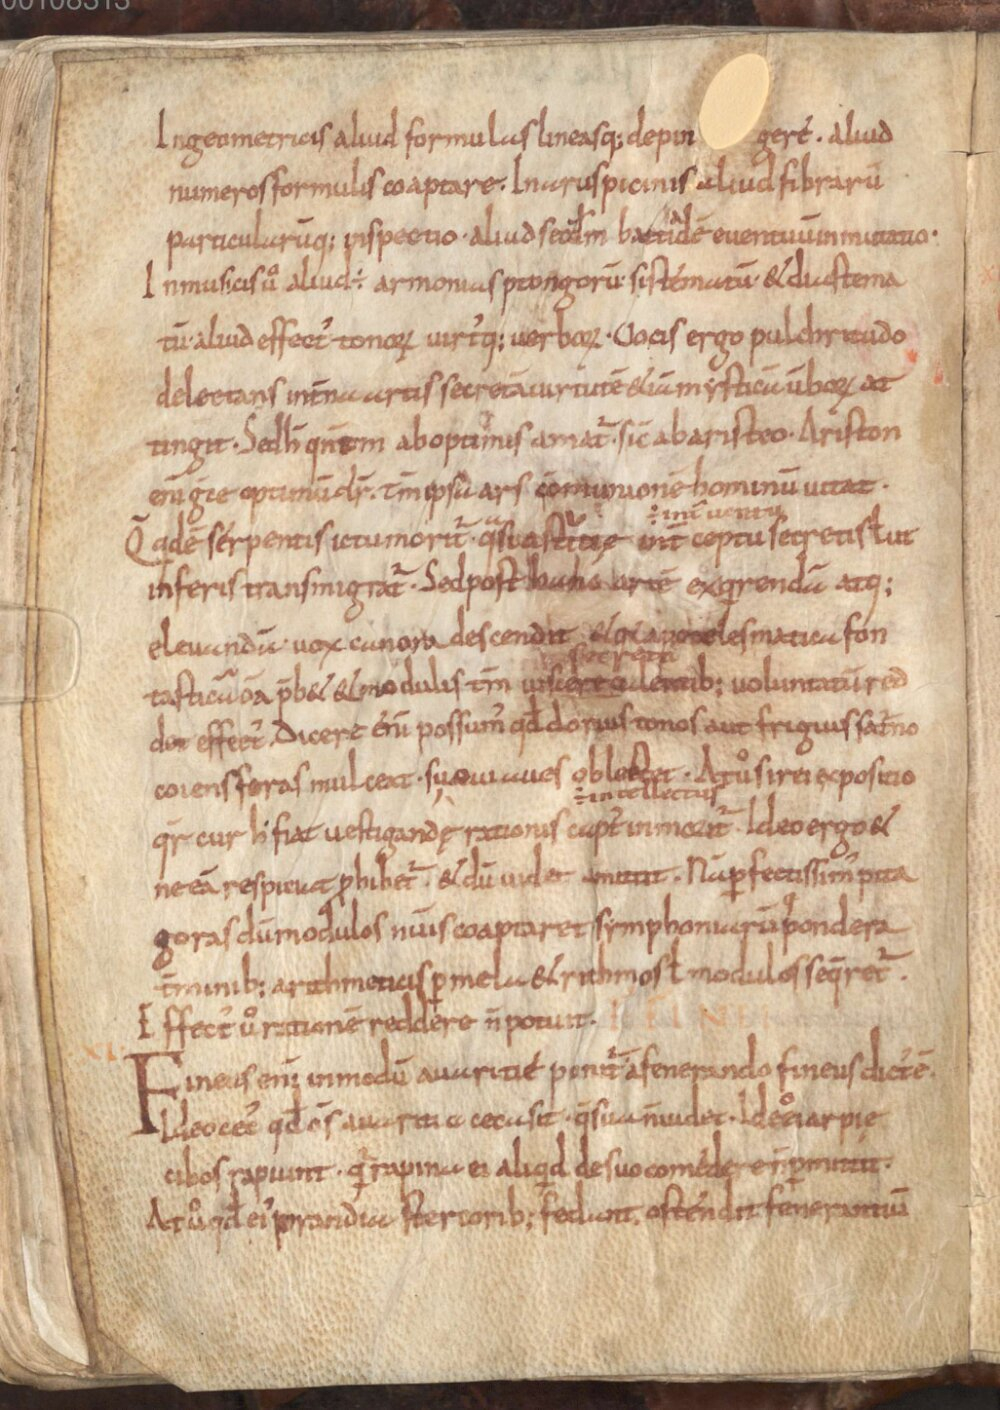 00108313
In geometricis aliud formulas lineasq; depin gere͂. aliud
numeros formulis coaptare. In aruspicinis aliud fibrarū
particularūq; inspectio. aliud euentuū inmutatio.
In musicis ů aliud ÷ armonias ptongorū sistematū & diastema
tū aliud effect᾽ tonoꝝ uirt᾽q; uerboꝝ. Uocis ergo pulchritudo
delectans int̄na artis secreta uirtutē & iā mysticā ūboꝝ at
tingit. Sed h̄ ab optimis amat᾽. sic̄ ab aristeo. Ariston
eni grē optimū dr̄. tm̄ ipsa ars cōmunionē hominū uitat.
Q qdē serpentis ictu morit᾽. int̄ceptu secretis ł ut
÷ int̄uentu
inferis transmigrat᾽. Sed post hui᾽ artē exqrendā atq;
eleuandā uox canora descendit & apotelesmatica fon
secreta
tastica p̄b& & modulis tm̄ uoluntatū red
dit effect᾽. Dicere eni possum᾽ qđ dorius tonos aut frigius saturno
coiens feras mulceat. si ioui aues oblectet. At ů si rei expositio
÷ intellectus
qr̄ cur h̄ fiat uestigandę rationis capt᾽ inmorit᾽. Ideo ergo &
ne eā respiciat ꝓhibet᾽. & dū uidet amittit. Nā ꝑfectissim᾽ pita
goras dū modulos coaptaret symphoniarū pondera
t̄minib; arithmeticis ꝑ mela & rithmos ł modulos seqret᾽.
Effect᾽ ů rationē reddere ñ potuit.
XI.
Fineus eni in modū auaritię ponit᾽ a fenerando fineus dict᾽ ē.
Ideo cec᾽ qđ ōs auaritia ceca sit. q̄ sua ñ uidet. Ideo ei arpię
cibos rapiunt. qa rapina ei aliqđ de suo comedere ñ ꝑmittit.
At ů qđ ei᾽ prandia stercorib; fedant. ostendit fenerantiū